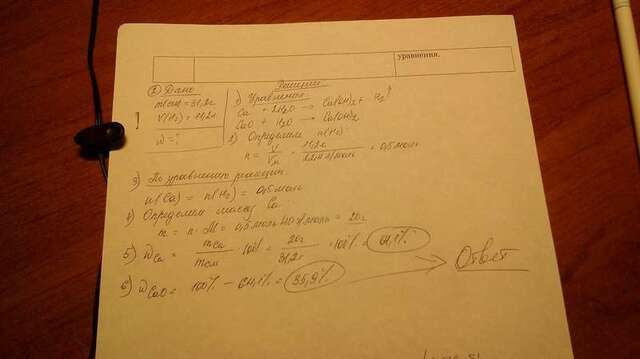 уравнения.
② Дано
m(см)=31,2г
V(H₂)=11,2л
ω=?
Решение
1) Уравнения
Ca + 2H₂O → Ca(OH)₂ + H₂↑
CaO + H₂O → Ca(OH)₂
2) Определяем n(H₂)
n = V/Vм = 11,2л/22,4л/моль = 0,5моль
3) По уравнению реакции
n(Ca) = n(H₂) = 0,5моль
4) Определяем массу Ca
m = n·M = 0,5моль·40г/моль = 20г
5) ωCa = mCa/mсм · 100% = 20г/31,2г · 100% = 64,1%
6) ωCaO = 100% − 64,1% = 35,9%
Ответ